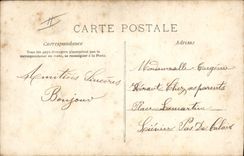 CARTE POSTALE
Correspondance
Adresse
Tous les pays étrangers n'acceptent pas la
correspondance au recto, se renseigner à la Poste.
Amitiés Sincères
Bonjour
Mademoiselle
Chez ses parents
Place Lamartine
Liévin Pas De Calais